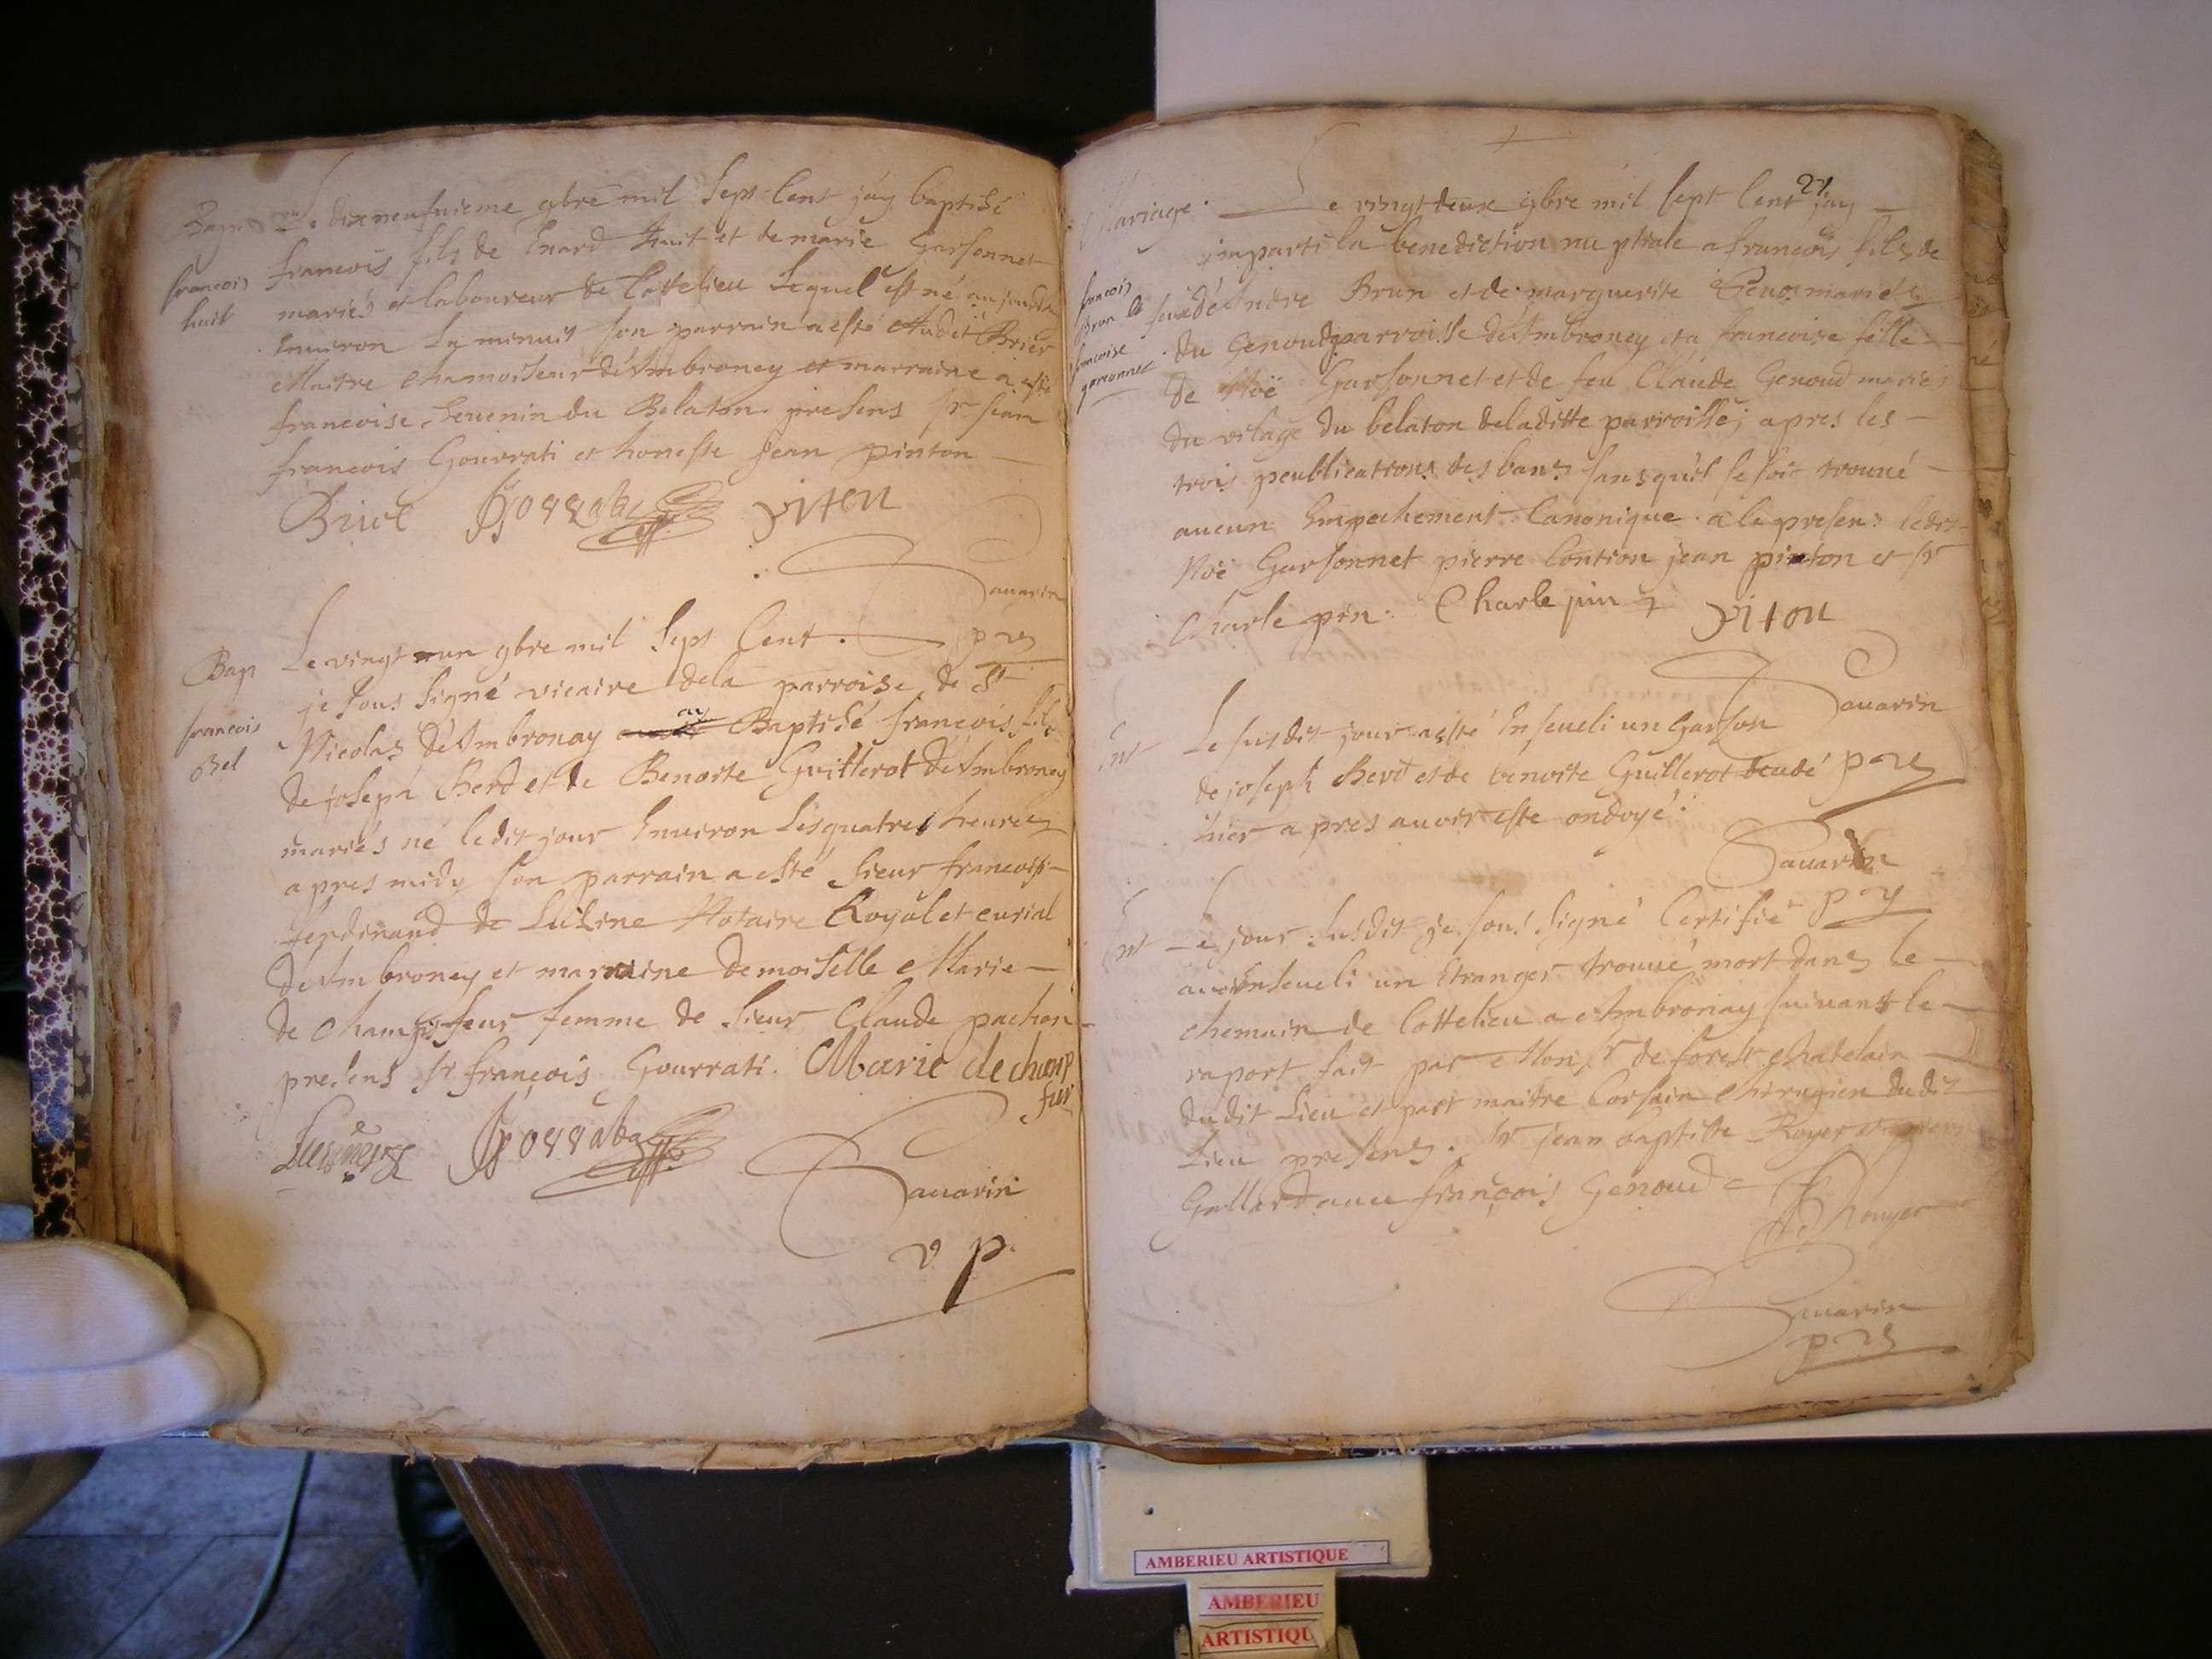 Bap
francois
huit
Le dixneufuieme gbre mil Sept Cent j'ay baptisé
francois fils de Enard huit et de marie Garsonnet
mariés et laboureur de Cottelieu Lequel est né
Enuiron La minuit son parrain a esté
Maitre chamoiseur d'Ambronay et marraine a esté
francoise Seuenin du Belaton presens Sr Jean
francois Gourrati et honeste Jean pinton
Brice piton
Sauarin
Bap
francois
Bel
Le vingt un gbre mil Sept Cent
je sous Signé vicaire de la parroise de St
Nicolas d'Ambronay ay Baptisé francois fils
de joseph Berd et de Benoite Guillerot d'Ambronay
mariés né ledit jour Enuiron Les quatre heures
apres midy son parrain a esté Sieur francois
ferdinand de Luisine Notaire Royal et curial
d'Ambronay et marraine demoiselle Marie
de champ feur femme de Sieur Claude pachon
presens Sr françois Gourrati. Marie de champ
fur
Sauarin
v p.
27
Mariage.
francois
Brun &
francoise
garconnet
Le vingt deux gbre mil sept Cent j'ay
imparti la benediction nuptiale a francois fils de
feu d'Andre Brun et de marguerite mariés
du Genoud parroisse d'Ambronay et a francoise fille
de Noë Garsonnet et de feu Claude Genoud mariés
du vilage du belaton de laditte parroisse; apres les
trois peublications des bans sans qu'il se soit trouué
aucun Empechement Canonique a ce presens ledit
Noë Garsonnet pierre Contion jean pinton et Sr
Charle pin. Charle pin piton
Sauarin
Ent
Le susdit jour a esté Enseueli un Garson
de joseph Berd et de benoite Guillerot
hier apres auoir este ondoyé.
Sauarin
Ent
Le jour Susdit je sous Signé Certifie
auoir Enseueli un Etranger trouué mort dans le
chemain de Cottelieu a Ambronay suiuant le
raport fait par Monsr de forest chatelain
dudit Lieu et part maitre Corsain chirugien dudit
Lieu presens. Sr jean baptiste Royer
Gallard auec françois Genoud
Sauarin
AMBERIEU ARTISTIQUE
AMBERIEU
ARTISTIQU